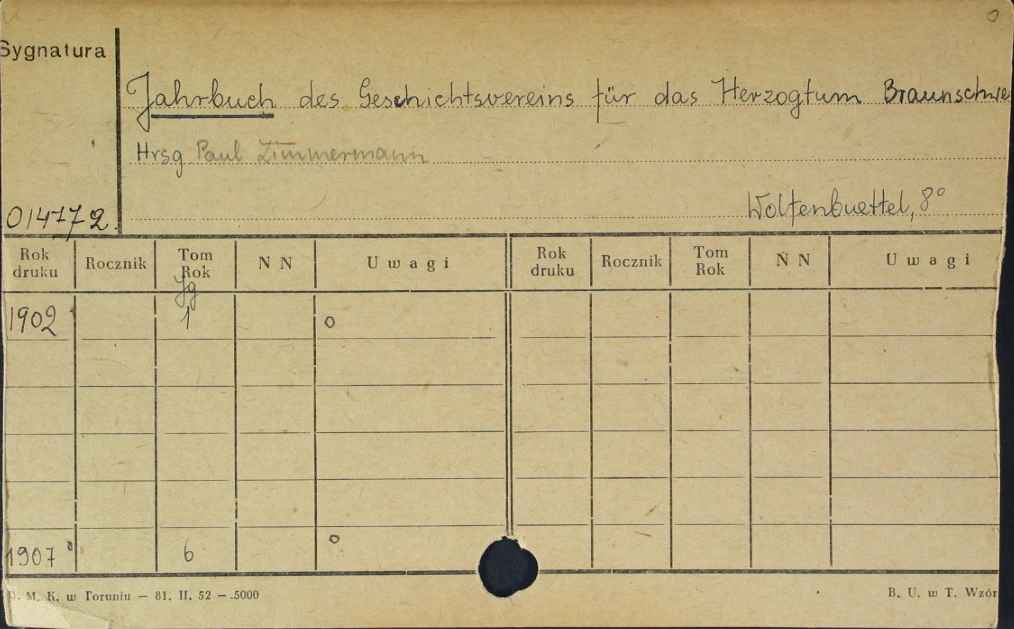 Sygnatura
Jahrbuch des Geschichtsvereins für das Herzogtum Braunschwe
Hrsg Paul Zimmermann
014772.
Wolfenbuettel, 8°
Rok druku Rocznik Tom Rok N N Uwagi Rok druku Rocznik Tom Rok N N Uwagi
Jg
1902 1 o
1907 6 o
D. M. K. w Toruniu — 81. II. 52 — .5000 B. U. w T. Wzór